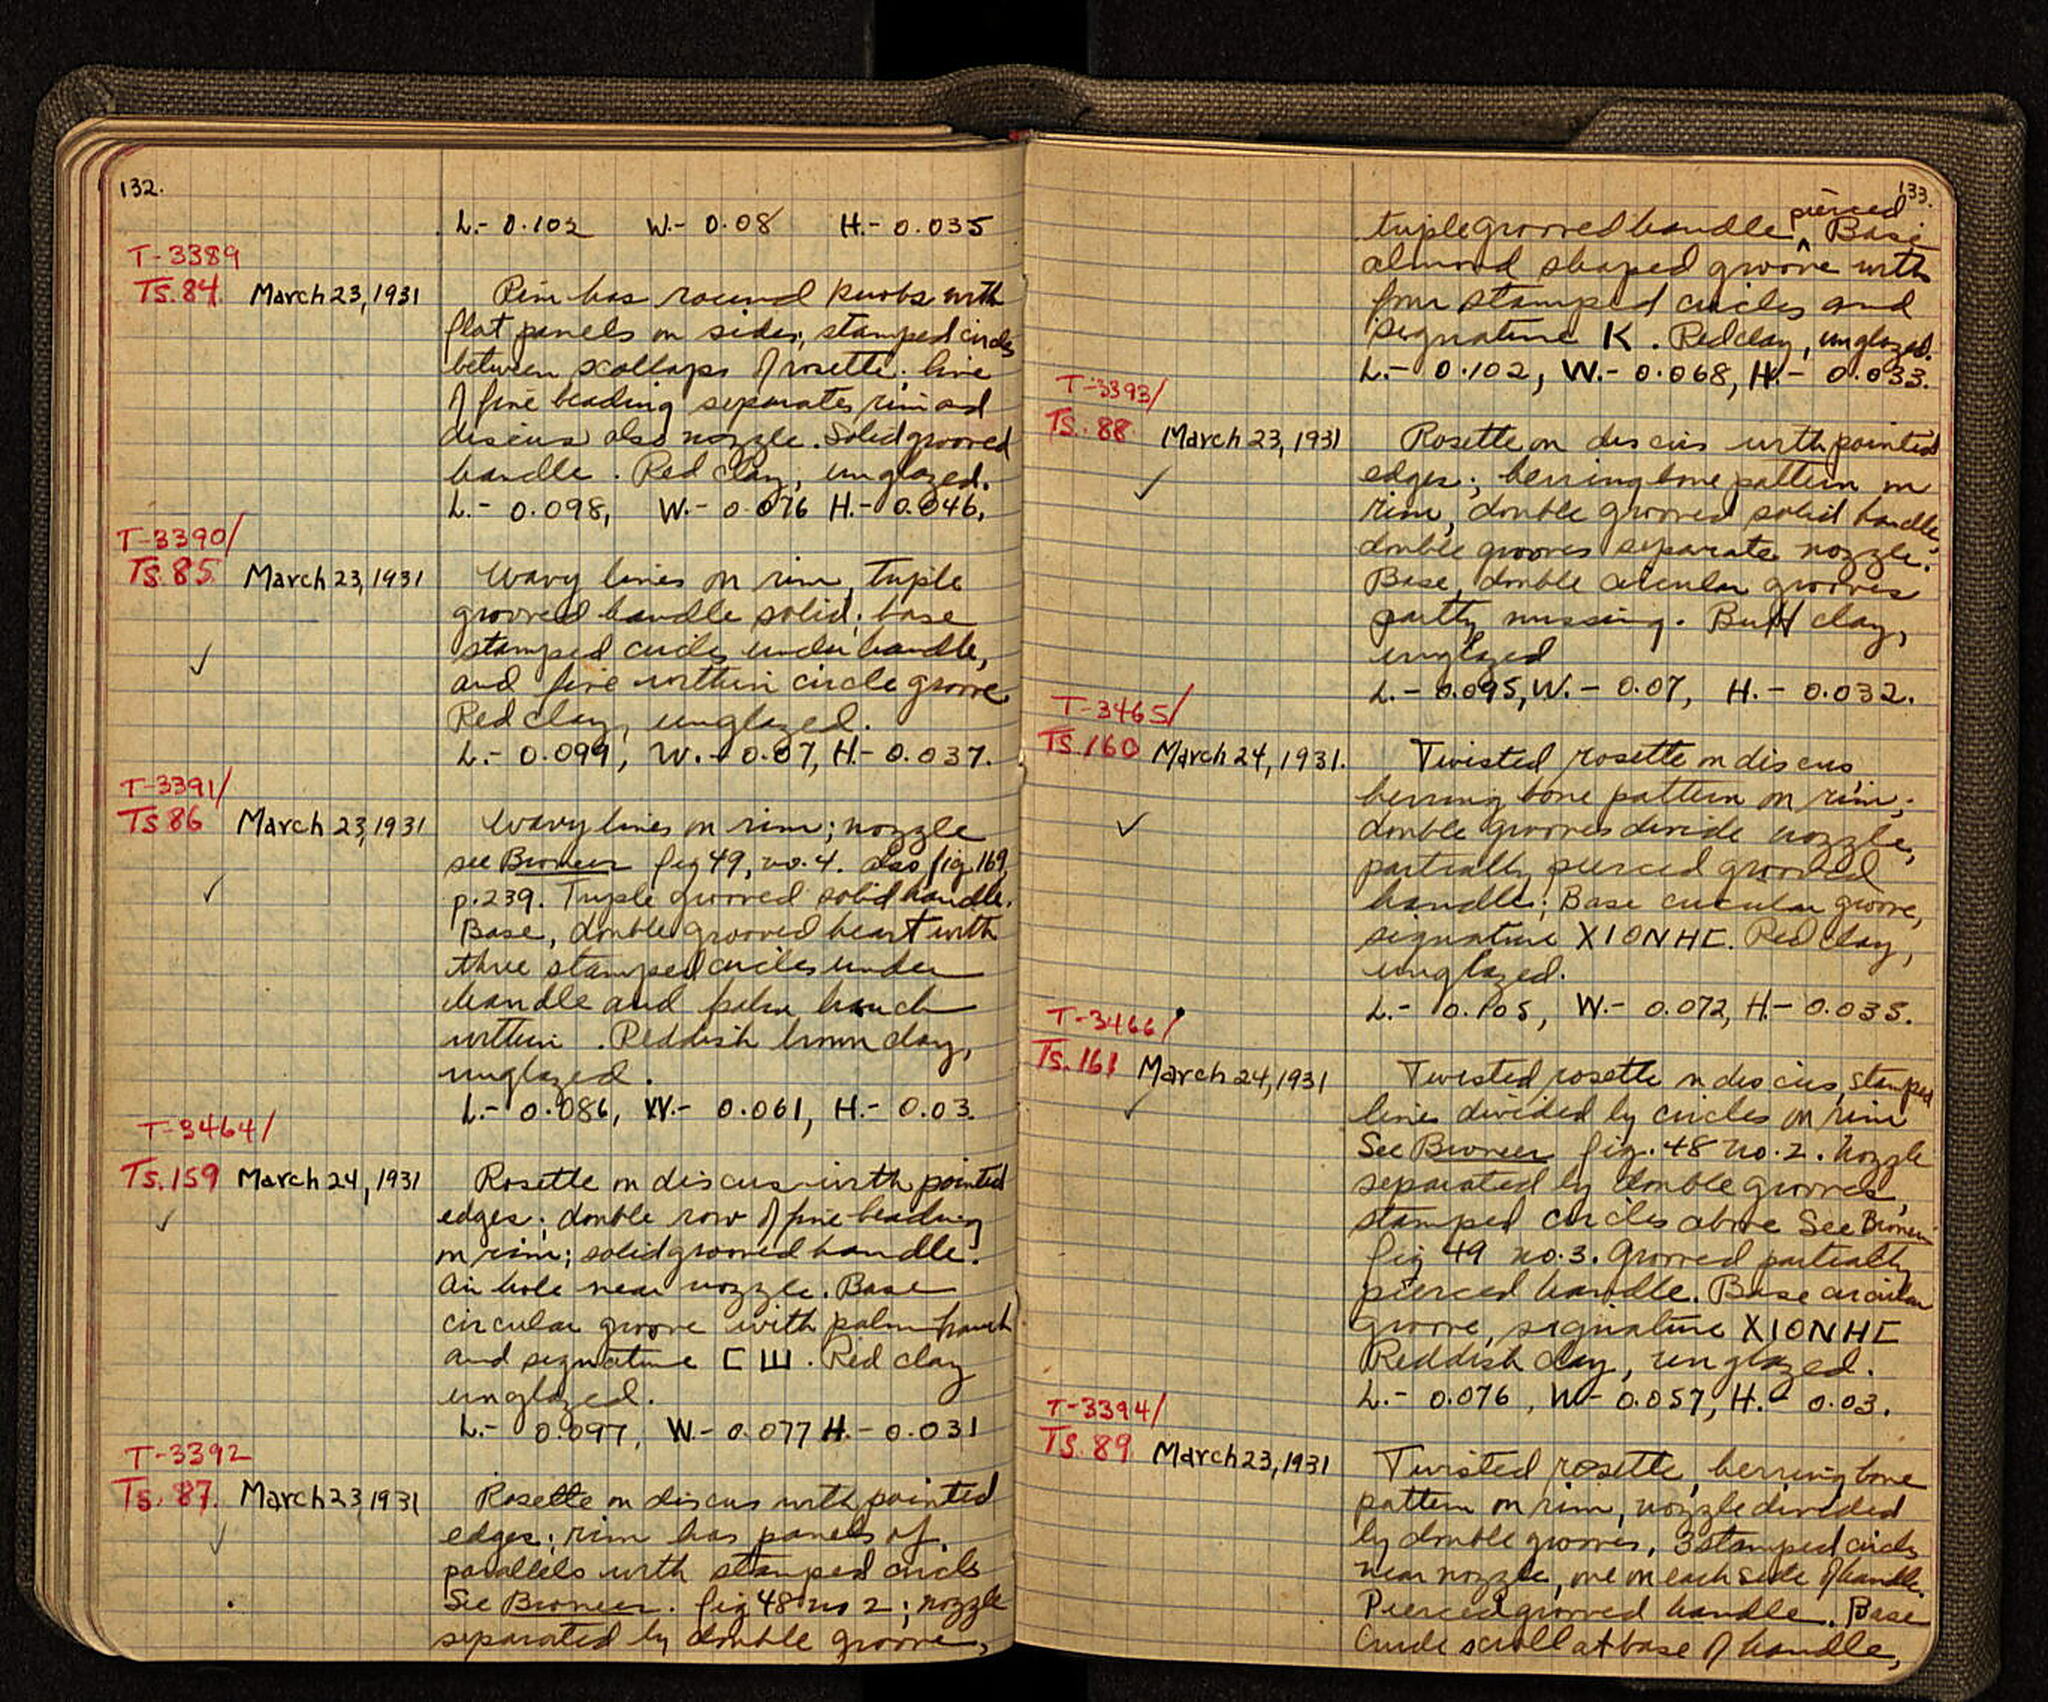 132.
L.- 0.102 W.- 0.08 H.- 0.035
T-3389
Ts. 84. March 23, 1931 Rim has round knobs with
flat panels on sides; stamped circles
between scallops of rosette; line
of fine beading separates rim and
discus also nozzle. Solid grooved
handle. Red clay, unglazed.
L.- 0.098, W.- 0.076 H.- 0.046.
T-3390/
Ts. 85 March 23, 1931 Wavy lines on rim, Triple
grooved handle solid; base
stamped circles under handle,
and five within circle groove
Red clay, unglazed.
L.- 0.099, W.- 0.07, H.- 0.037.
T-3391/
Ts 86 March 23, 1931 Wavy lines on rim; nozzle
see Broneer fig 49, no. 4. also fig. 169,
p. 239. Triple grooved solid handle.
Base, double grooved heart with
three stamped circles under
handle and palm branch
within. Reddish brown clay,
unglazed.
L.- 0.086, W.- 0.061, H.- 0.03.
T-3464/
Ts. 159 March 24, 1931 Rosette on discus with pointed
edges; double row of fine beading
on rim; solid grooved handle.
Air hole near nozzle. Base
circular groove with palm branch
and signature C Ш. Red clay
unglazed.
L.- 0.097, W.- 0.077 H.- 0.031
T-3392
Ts. 87. March 23, 1931 Rosette on discus with pointed
edges; rim has panels of
parallels with stamped circls
See Broneer. fig 48 no 2; nozzle
separated by double groove,
133.
triple grooved handle pierced. Base
almond shaped groove with
four stamped circles and
signature K. Red clay, unglazed.
L.- 0.102, W.- 0.068, H.- 0.033.
T-3393/
Ts. 88 March 23, 1931 Rosette on discus with pointed
edges; herringbone pattern on
rim, double grooved solid handle;
double grooves separate nozzle.
Base, double circular grooves
partly missing. Buff clay,
unglazed
L.- 0.095, W.- 0.07, H.- 0.032.
T-3465/
Ts. 160 March 24, 1931. Twisted rosette on discus
herring bone pattern on rim;
double grooves divide nozzle,
partially pierced grooved
handle; Base circular groove,
signature XIONHC. Red clay,
unglazed.
L.- 0.105, W.- 0.072, H.- 0.035.
T-3466/
Ts. 161 March 24, 1931 Twisted rosette on discus, stamped
lines divided by circles on rim
See Broneer fig. 48 no. 2. Nozzle
separated by double grooves,
stamped circles above See Broneer
fig 49 no. 3. Grooved partially
pierced handle. Base circular
groove, signature XIONHC
Reddish clay, unglazed.
L.- 0.076, W- 0.057, H.- 0.03.
T-3394/
Ts. 89. March 23, 1931 Twisted rosette, herring bone
pattern on rim, nozzle divided
by double grooves, 3 stamped circls
near nozzle, one on each side of handle.
Pierced grooved handle. Base
Crude scroll at base of handle,